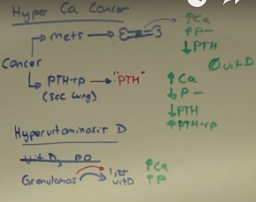 Hyper Ca Cancer
↑Ca
↑P-
mets
↓PTH
Cancer
∅vitD
PTH-rp → "PTH"
↑Ca
(SCC lung)
↓P-
↓PTH
↑PTH-rp
Hypervitaminosis D
vit D, PO
↑Ca
Granulomas → 1,25 vitD
↑P